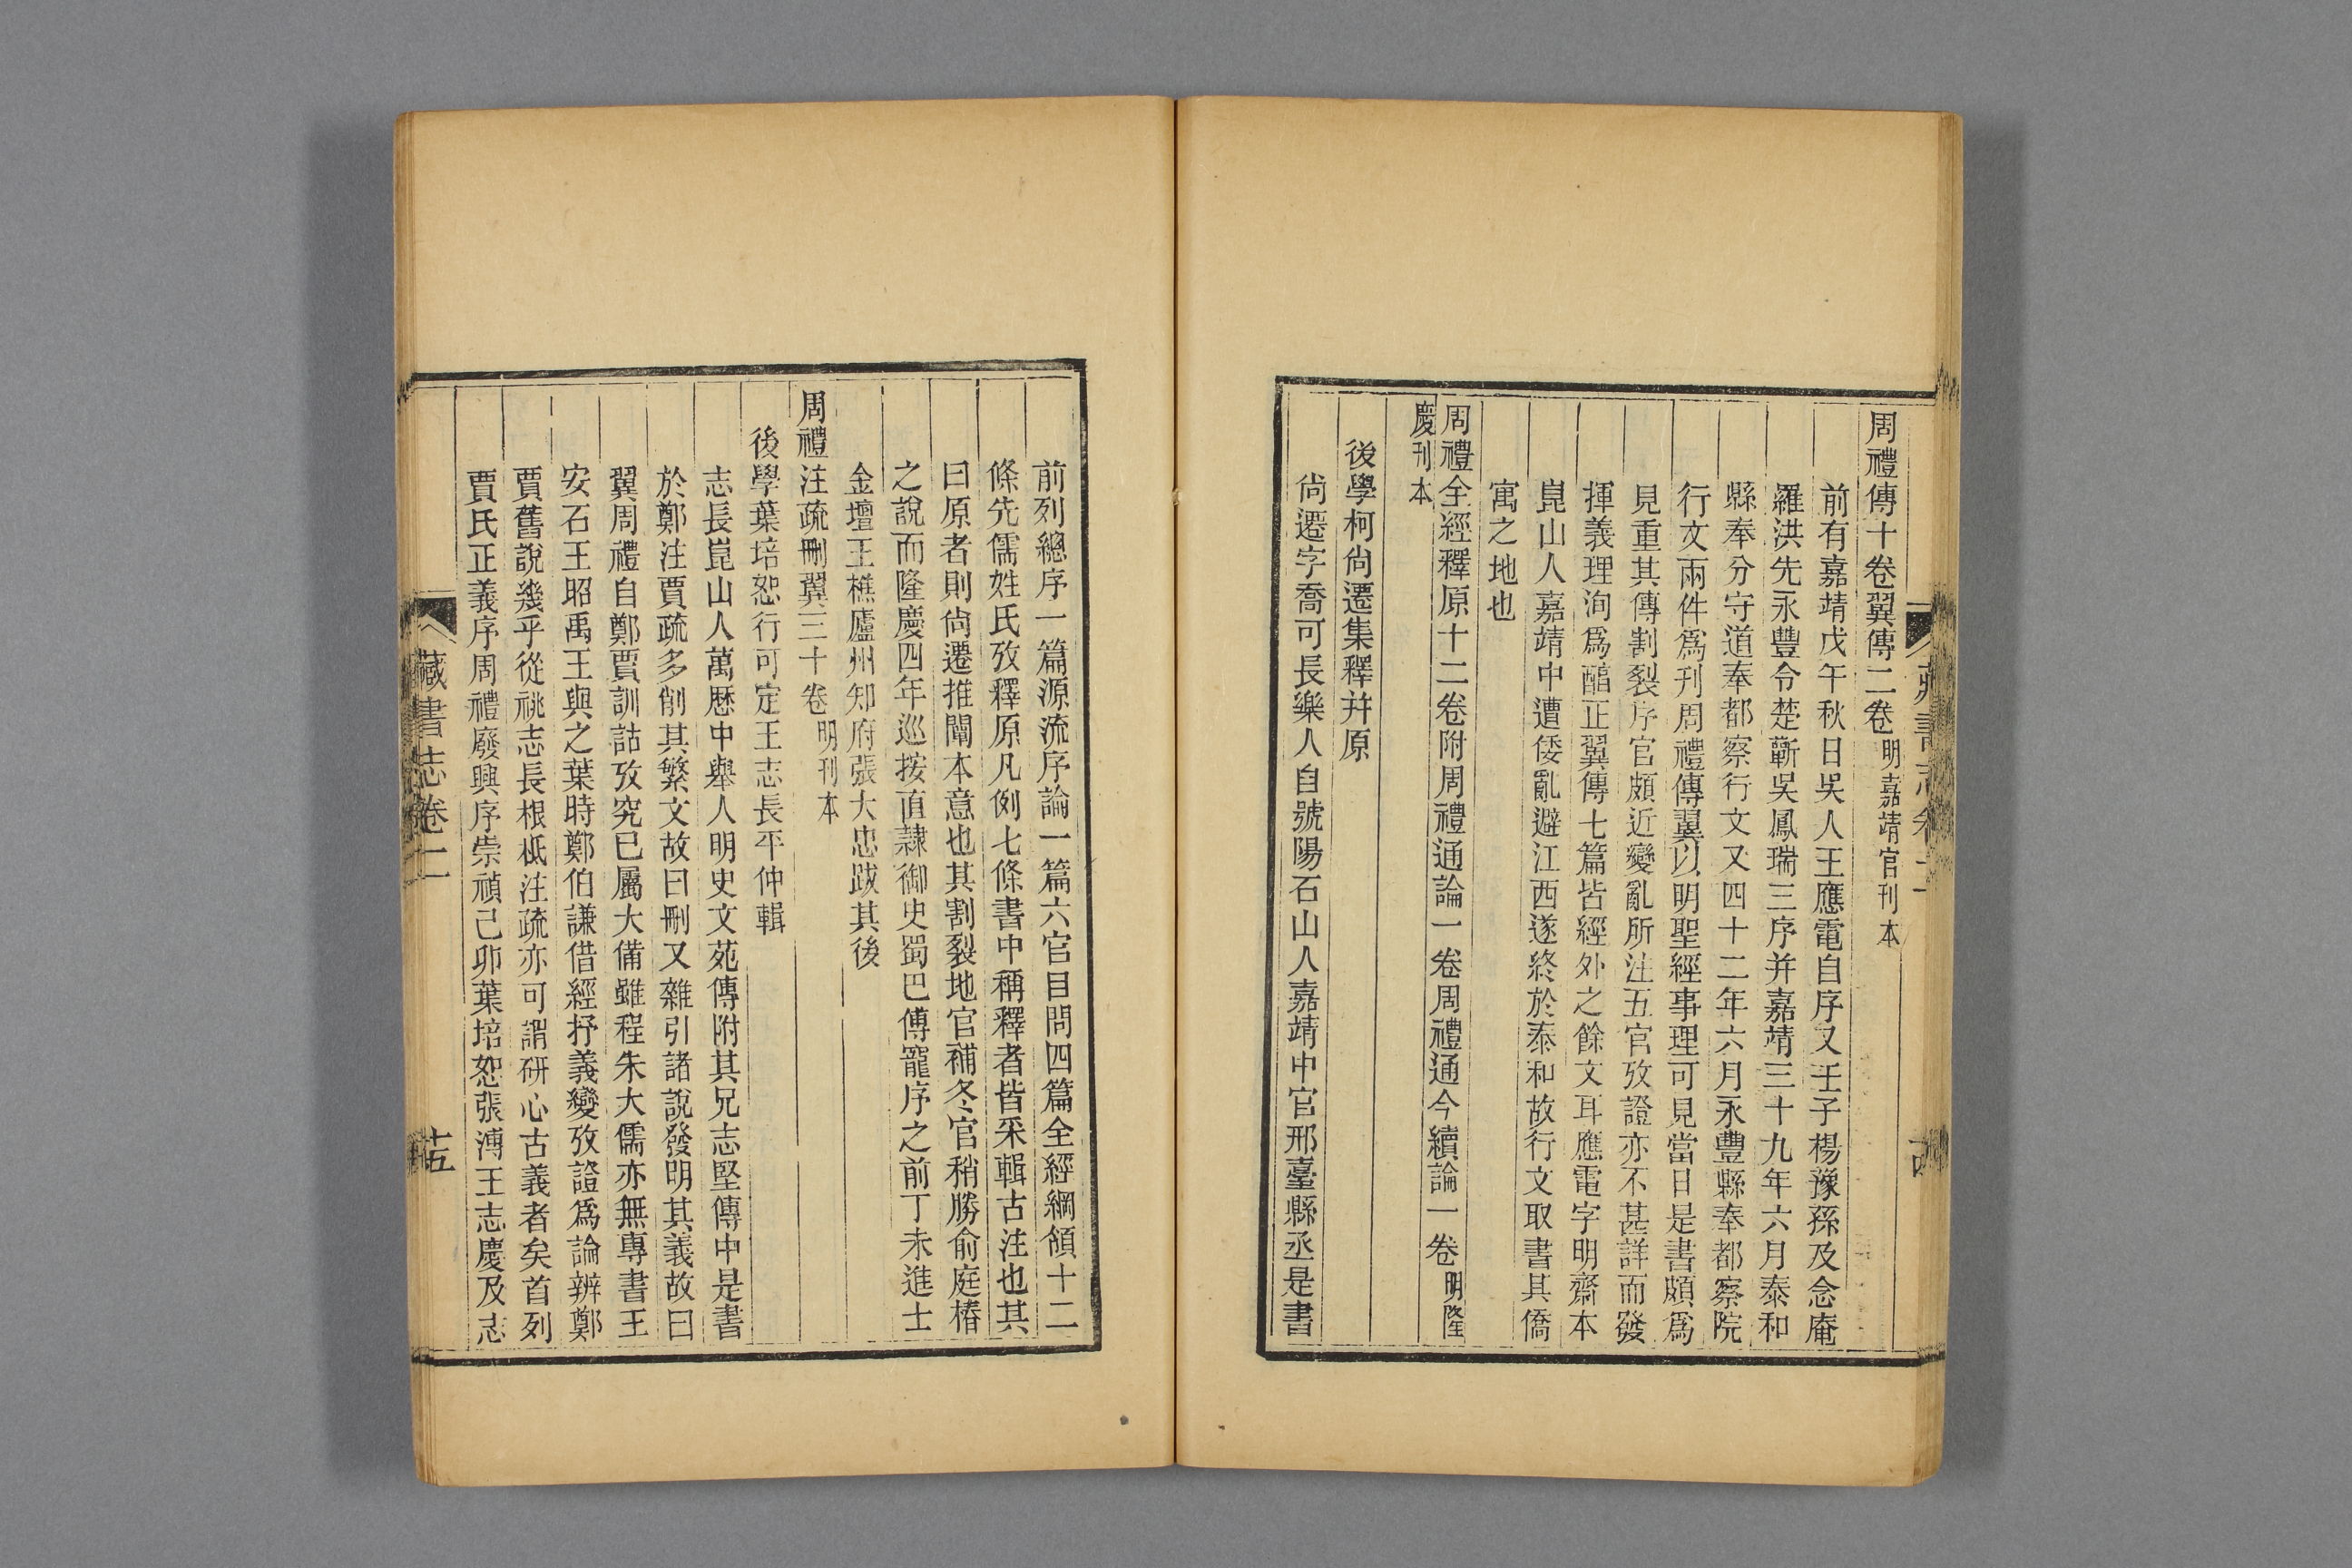 周禮傳十卷翼傳二卷明嘉靖官刊本
前有嘉靖戊午秋日吳人王應電自序又壬子楊豫孫及念庵
羅洪先永豐令楚蘄吳鳳瑞三序并嘉靖三十九年六月泰和
縣奉分守道奉都察行文又四十二年六月永豐縣奉都察院
行文兩件爲刊周禮傳翼以明聖經事理可見當日是書頗爲
見重其傳割裂序官頗近變亂所注五官攷證亦不甚詳而發
揮義理洵爲醕正翼傳七篇皆經外之餘文耳應電字明齋本
崑山人嘉靖中遭倭亂避江西遂終於泰和故行文取書其僑
寓之地也
周禮全經釋原十二卷附周禮通論一卷周禮通今續論一卷明隆
慶刊本
後學柯尙遷集釋幷原
尙遷字喬可長樂人自號陽石山人嘉靖中官邢臺縣丞是書
前列總序一篇源流序論一篇六官目問四篇全經綱領十二
條先儒姓氏攷釋原凡例七條書中稱釋者皆采輯古注也其
曰原者則尙遷推闡本意也其割裂地官補冬官稍勝俞庭椿
之說而隆慶四年巡按直隸御史蜀巴傅寵序之前丁未進士
金壇王樵廬州知府張大忠跋其後
周禮注疏刪翼三十卷明刊本
後學葉培恕行可定王志長平仲輯
志長崑山人萬歷中舉人明史文苑傳附其兄志堅傳中是書
於鄭注賈疏多削其繁文故曰刪又雜引諸說發明其義故曰
翼周禮自鄭賈訓詁攷究已屬大備雖程朱大儒亦無專書王
安石王昭禹王與之葉時鄭伯謙借經抒義變攷證爲論辨鄭
賈舊說幾乎從祧志長根柢注疏亦可謂研心古義者矣首列
賈氏正義序周禮廢興序崇禎己卯葉培恕張溥王志慶及志
藏書志卷二
十五